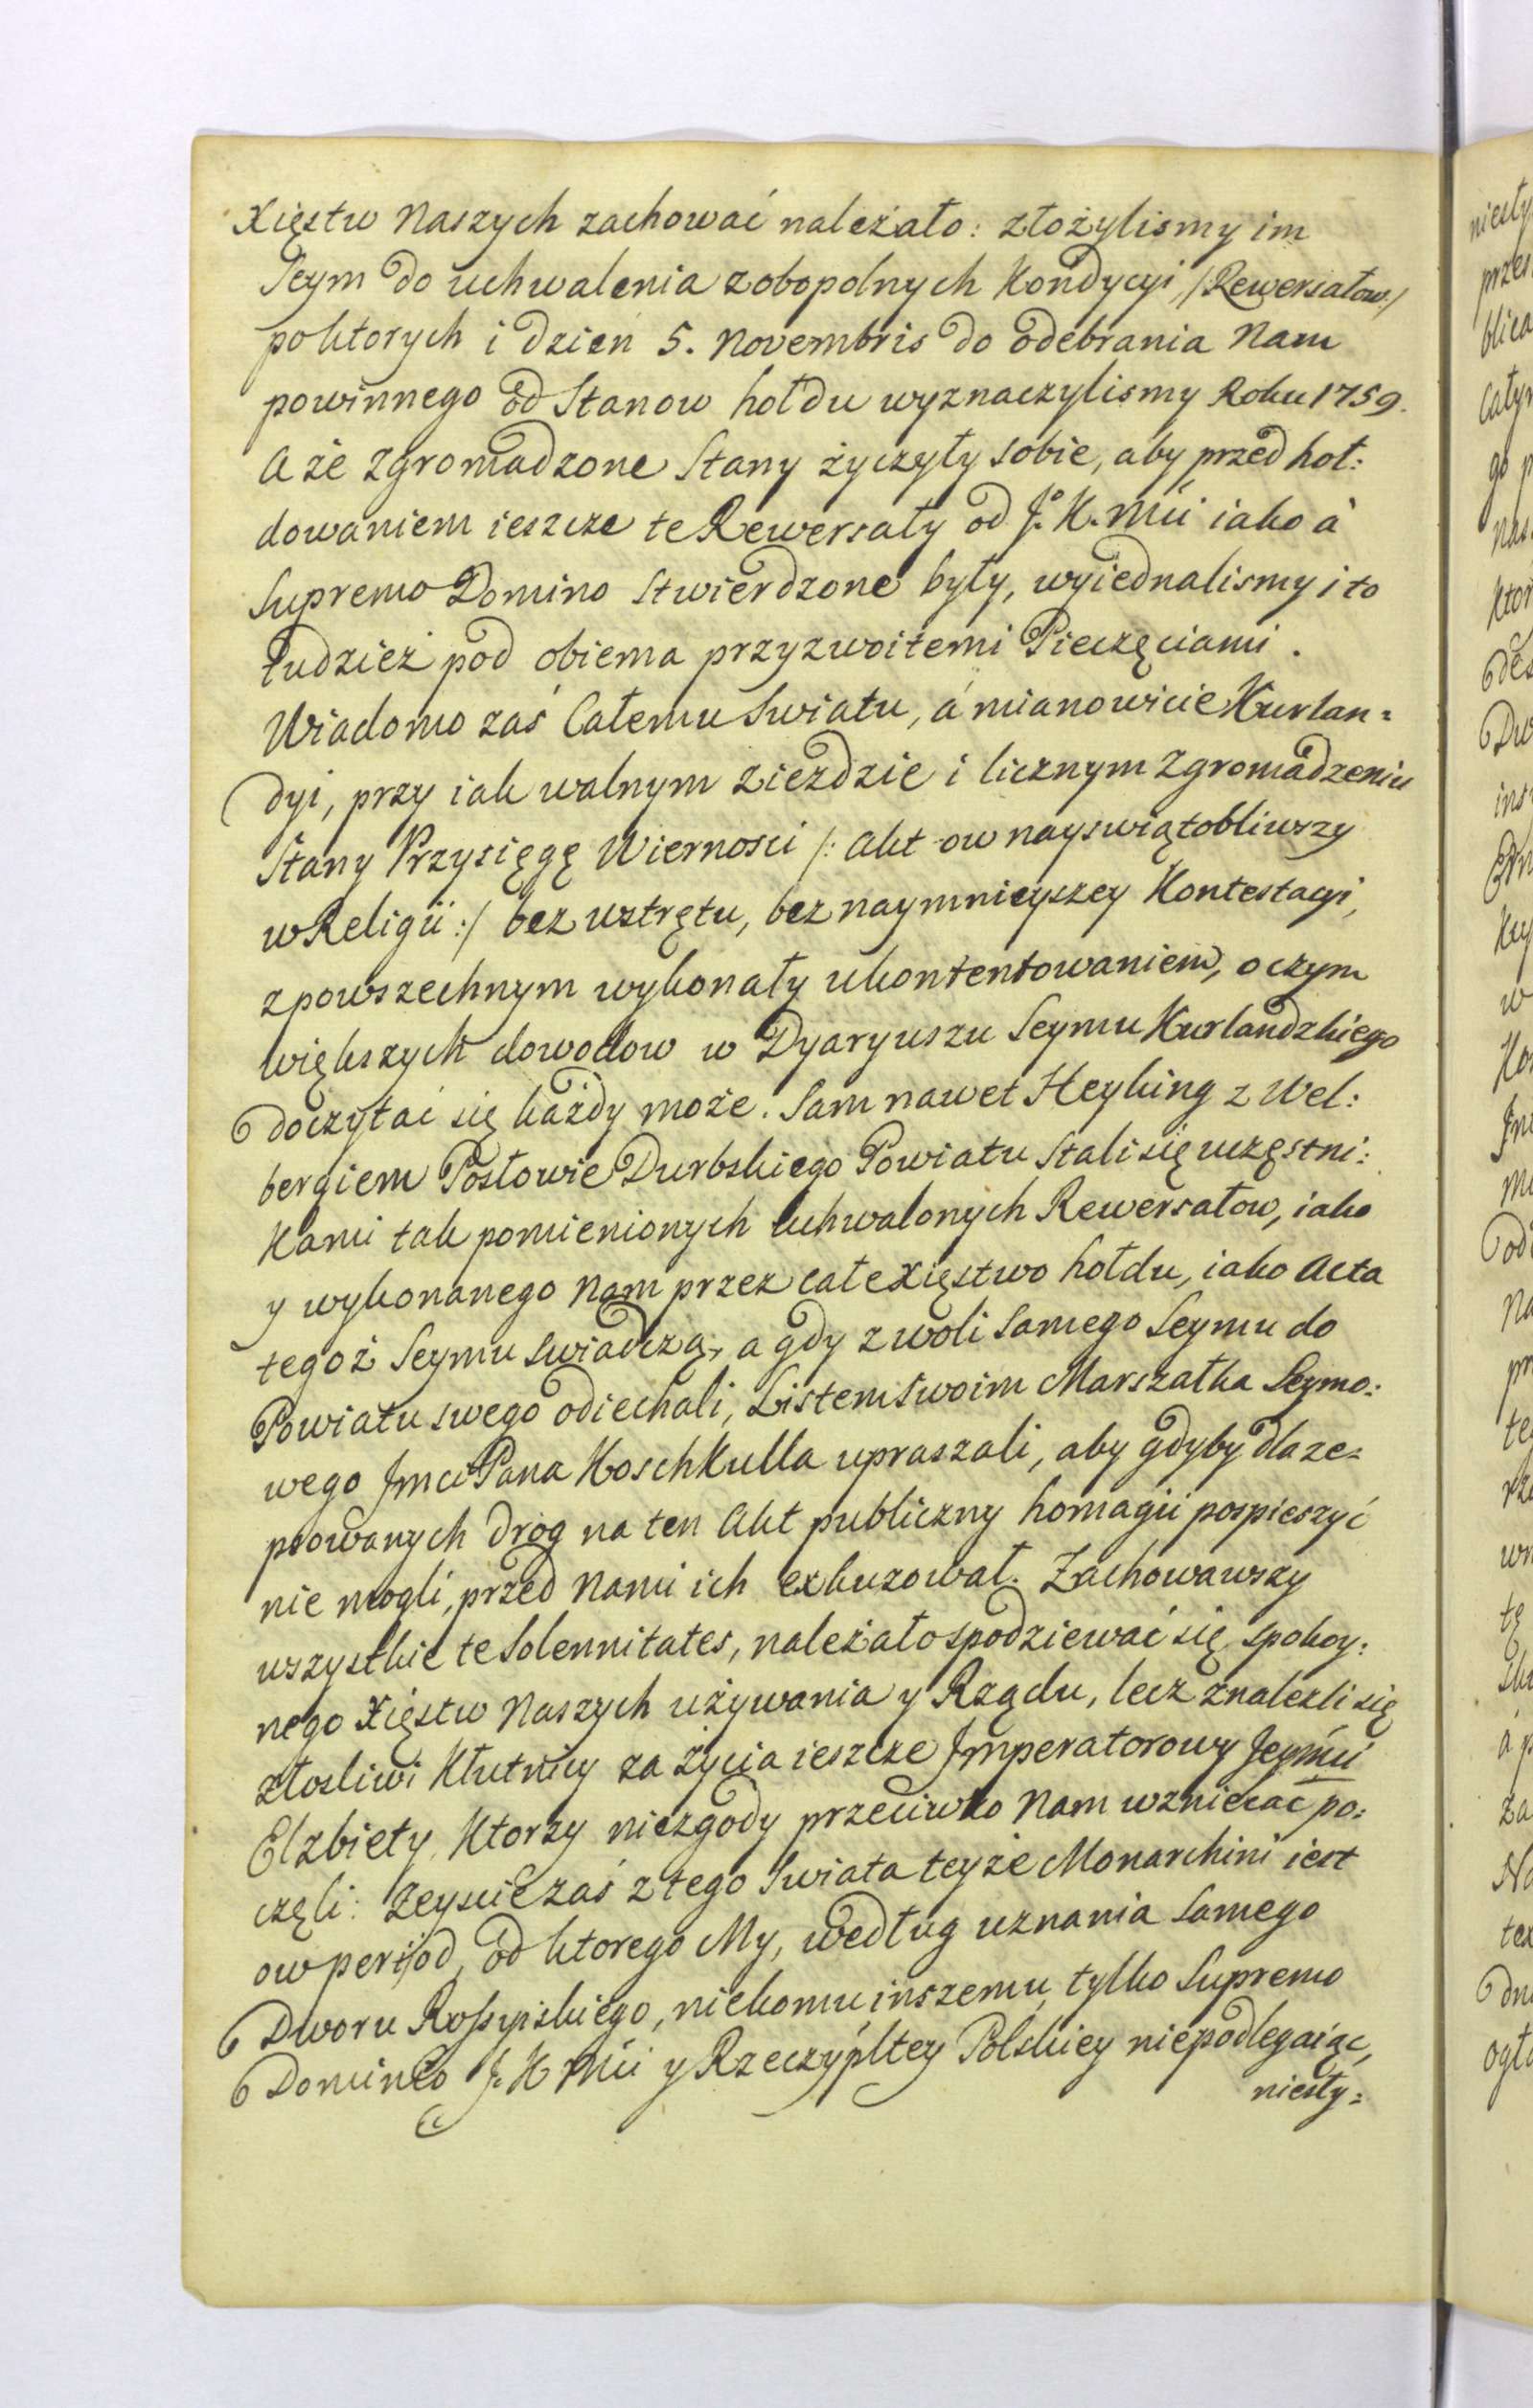 Xięstw Naszych zachować należało: złożylismy im
Seym do uchwalenia zobopolnych Kondycyi, /Rewersałow./
poktorych i dzień 5. Novembris do odebrania Nam
powinnego od Stanow hołdu wyznaczylismy Roku 1759.
A że zgromadzone Stany życzyły sobie, aby przed hoł:
dowaniem ieszcze te Rewersały od J.º K. Mći iako à
Supremo Domino stwierdzone były, wyiednalismy i to
tudzież pod obiema przyzwoitemi Pieczęciami.
Wiadomo zaś Całemu Swiatu, á mianowicie Kurlan=
dyi, przy iak walnym zieździe i licznym zgromadzeniu
Stany Przysięgę Wiernosci /: akt ow nayswiątobliwszy
w Religii :/ bez wstrętu, bez naymnieyszey Kontestacyi,
z powszechnym wykonały ukontentowaniem, o czym
większych dowodow w Dyaryuszu Seymu Kurlandzkiego
doczytać się każdy może. Sam nawet Heyking z Wel:
bergiem Posłowie Durbskiego Powiatu stali się uczęstni:
kami tak pomienionych uchwalonych Rewersałow, iako
y wykonanego Nam przez całe Xięstwo hołdu, iako Acta
tegoż Seymu swiadczą, a gdy z woli samego Seymu do
Powiatu swego odiechali, Listem swoim Marszałka Seymo:
wego Jmci Pana Koschkulla upraszali, aby gdyby dla ze=
psowanych drog na ten Akt publiczny homagii pospieszyć
nie mogli, przed Nami ich exkuzował. Zachowawszy
wszystkie te Solennitates, należało spodziewać się spokoy:
nego Xięstw Naszych używania y Rządu, lecz znalezli się
złosliwi Kłutnicy za życia ieszcze Imperatorowy Jeymći
Elzbiety, Ktorzy niezgody przeciwko Nam wzniecać po:
częli: Zeyscie zaś z tego Swiata teyże Monarchini iest
ow period, od ktorego My, według uznania samego
Dworu Rossyiskiego, nickomu inszemu, tylko Supremo
Domino J. K Mći y Rzeczypltey Polskiey niepodlegaiąc,
niesły=